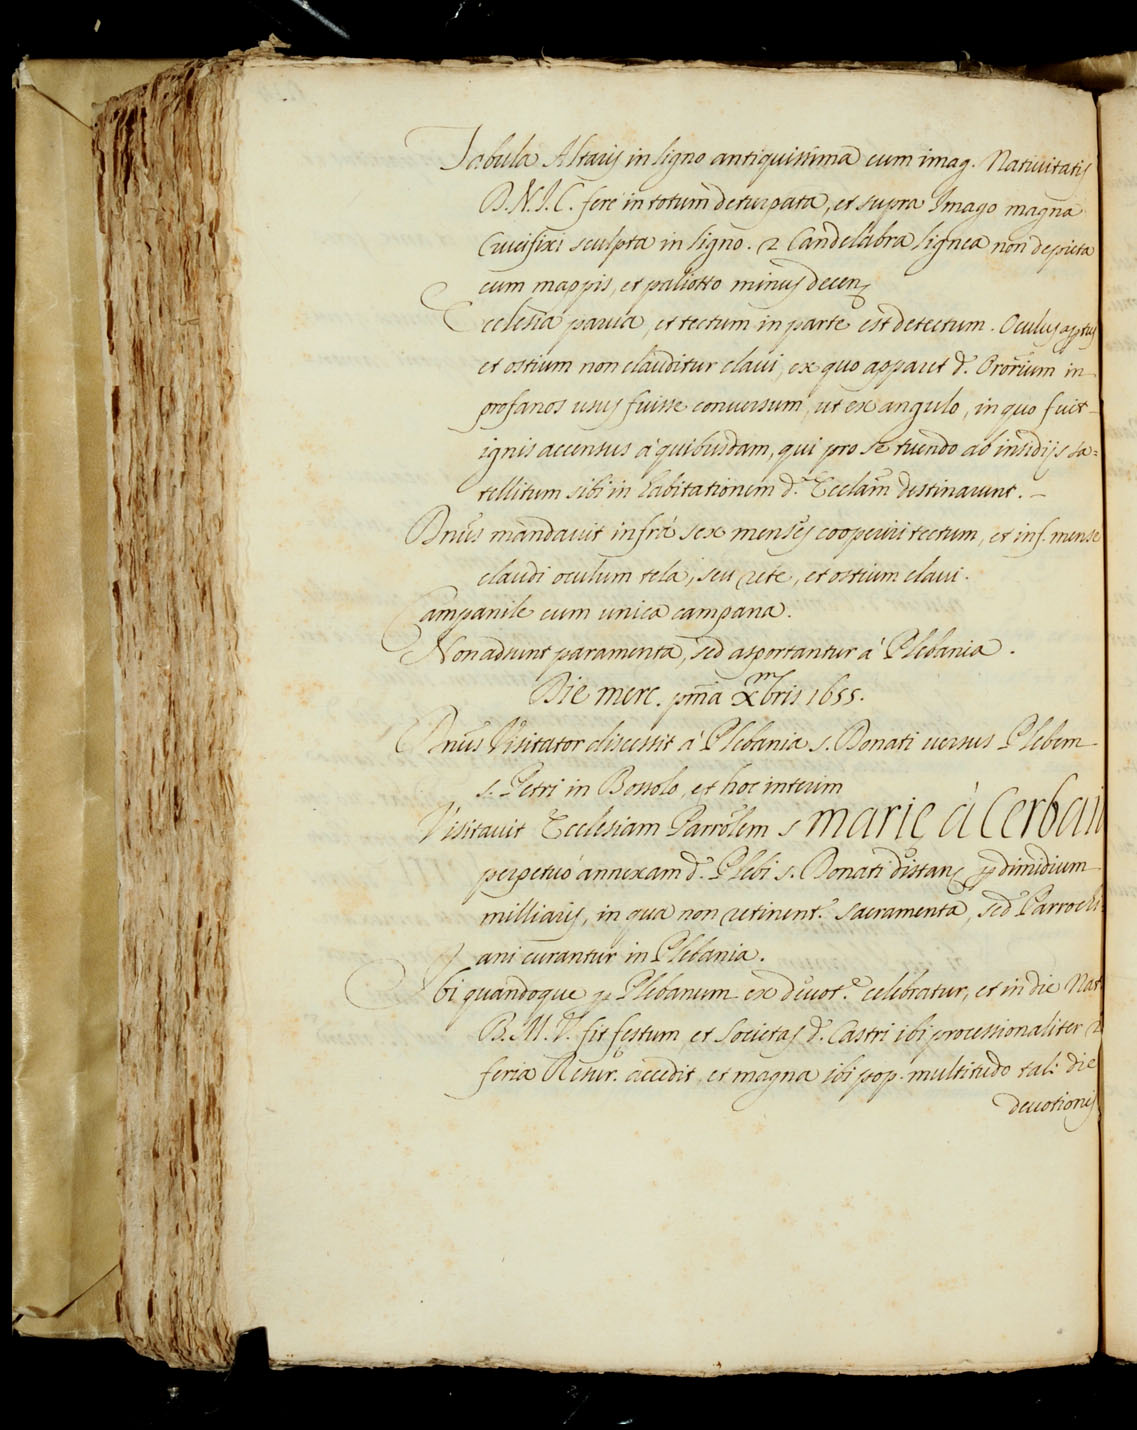 Tabula Altaris in ligno antiquissima cum imag. Nativitatis
D.N.J.C. fere in totum deturpata, et supra Imago magna
Crucifixi sculpta in ligno. 2 Candelabra lignea non depicta
cum mappis, et paliotto minus decens
Ecclesia parva, et tectum in parte est detectum. Oculus aptus
et ostium non clauditur clavi, ex quo apparet d. Ororium in
profanos usus fuisse conversum, ut ex angulo, in quo fuit
ignis accensus à quibusdam, qui pro se tuendo ab insidijs sa=
tellitum sibi in habitationem d. Ecclam destinarunt.
Dnus mandavit infrà sex menses cooperiri tectum, et inf. mense
claudi oculum tela, seu rete, et ostium clavi.
Campanile cum unica campana.
Non adsunt paramenta, sed asportantur à Plebania.
Die merc. pma Xmbris 1655.
Dnus Visitator discessit à Plebania s. Donati versus Plebem
s. Petri in Bossolo, et hoc interim
Visitavit Ecclesiam Parrolem s marie à Cerbaia
perpetuò annexam d. Plebi s. Donati distans p dimidium
milliaris, in qua non retinent. Sacramenta, sed Parrochi
ani curantur in Plebania.
Ubi quandoque p Plebanum ex devot.e celebratur, et in die Nat
B.M.V. fit festum et Societas d. Castri ibi processionaliter 2
feria Resur. accedit, et magna ibi pop. multitudo tali die
devotionis